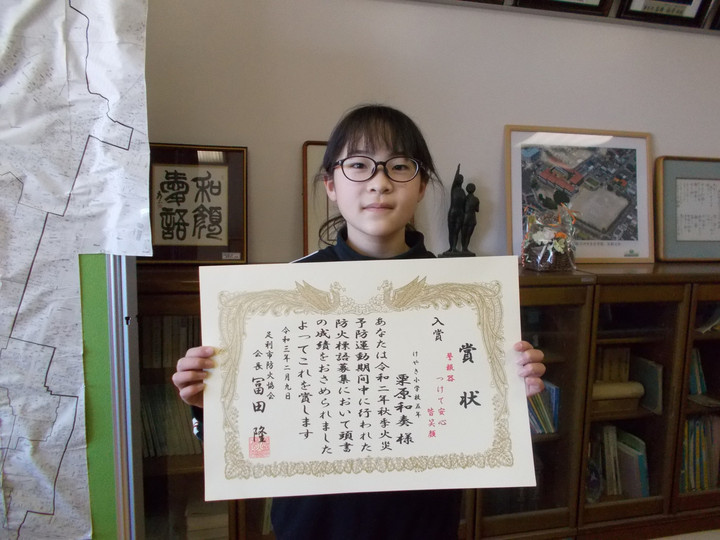 賞状
入賞
警報器
つけて安心
皆笑顔
けやき小学校五年
栗原和奏 様
あなたは令和二年秋季火災
予防運動期間中に行われた
防火標語募集において頭書
の成績をおさめられました
よってこれを賞します
令和三年二月九日
足利市防火協会
会長 冨田 隆
和顔
愛語